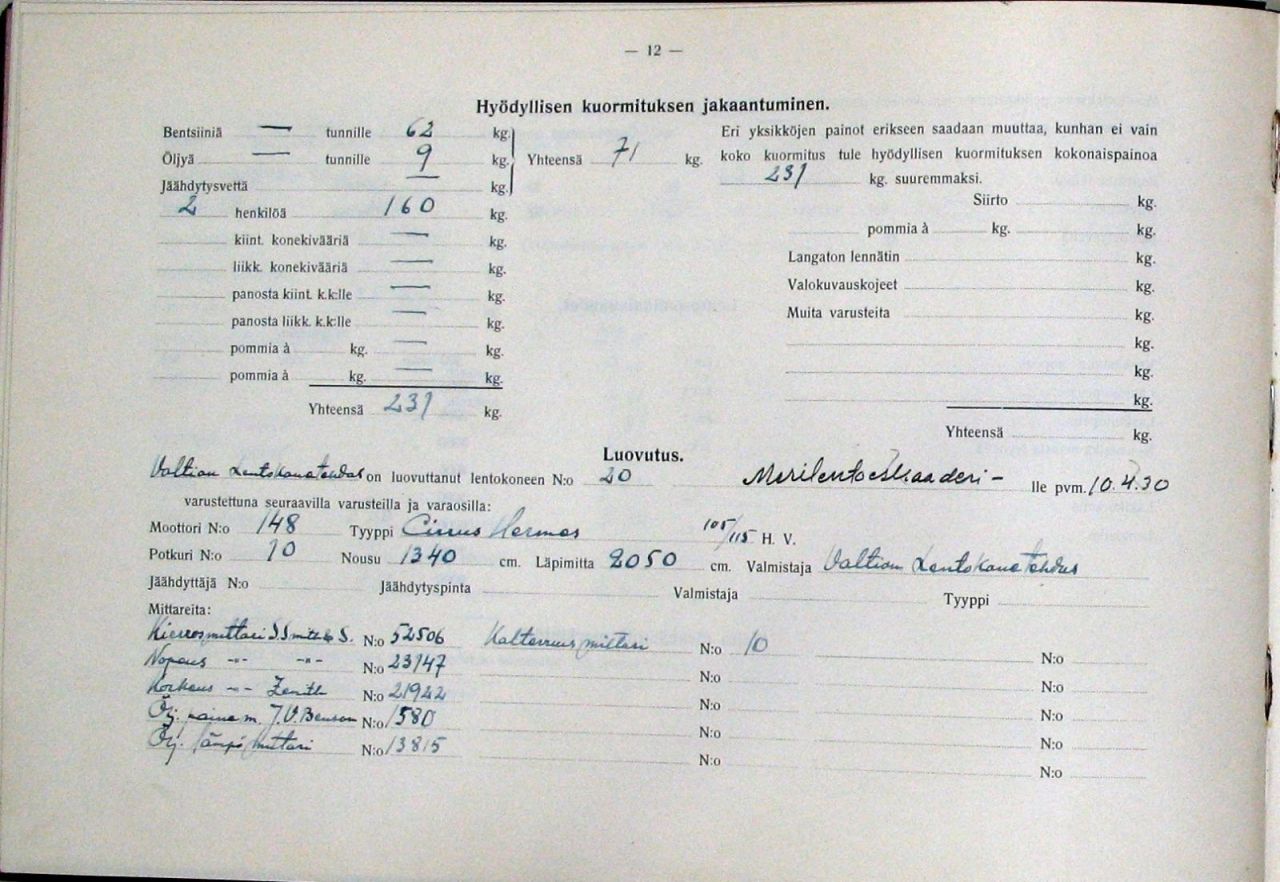 — 12 —
Hyödyllisen kuormituksen jakaantuminen.
Bentsiiniä — tunnille 62 kg.
Öljyä — tunnille 9 kg.
Yhteensä 71 kg.
Jäähdytysvettä — kg.
2 henkilöä 160 kg.
kiint. konekivääriä — kg.
liikk. konekivääriä — kg.
panosta kiint. k.k:lle — kg.
panosta liikk. k.k:lle — kg.
pommia à kg. — kg.
pommia à kg. — kg.
Yhteensä 231 kg.
Eri yksikköjen painot erikseen saadaan muuttaa, kunhan ei vain
koko kuormitus tule hyödyllisen kuormituksen kokonaispainoa
231 kg. suuremmaksi.
Siirto kg.
pommia à kg. kg.
Langaton lennätin kg.
Valokuvauskojeet kg.
Muita varusteita kg.
kg.
kg.
kg.
Yhteensä kg.
Luovutus.
Valtion Lentokonetehdas on luovuttanut lentokoneen N:o 20 Merilentoeskaaderi – lle pvm. 10.4.30
varustettuna seuraavilla varusteilla ja varaosilla:
Moottori N:o 148 Tyyppi Cirrus Hermes 105/115 H. V.
Potkuri N:o 10 Nousu 1340 cm. Läpimitta 2050 cm. Valmistaja Valtion Lentokonetehdas
Jäähdyttäjä N:o Jäähdytyspinta Valmistaja Tyyppi
Mittareita:
Kierrosmittari S. Smith & S. N:o 52506 Kaltevuusmittari N:o 10 N:o
Nopeus -"- -"- N:o 23147 N:o N:o
Korkeus -"- Zenith N:o 21922 N:o N:o
Ölj 
paine m. J.V. Benson N:o 1580 N:o N:o
Öłj. lämpömittari N:o 13815 N:o N:o